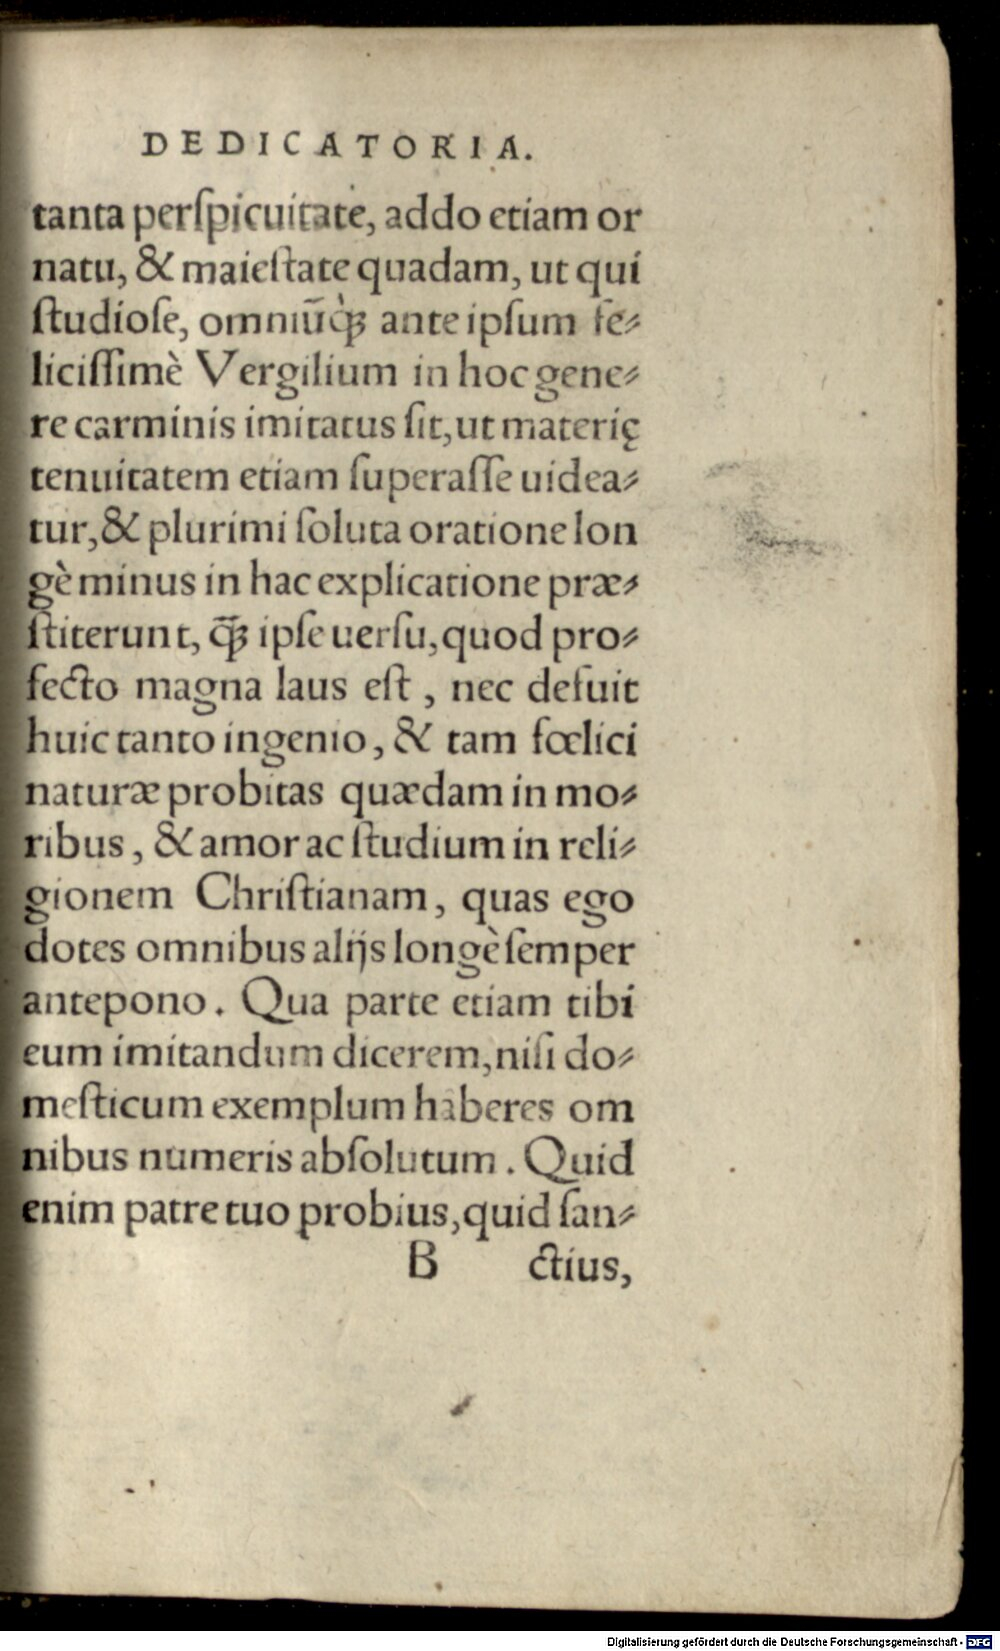 DEDICATORIA.
tanta perſpicuitate, addo etiam or
natu, & maieſtate quadam, ut qui
ſtudioſe, omniūq́; ante ipſum fe⸗
liciſſimè Vergilium in hoc gene⸗
re carminis imitatus ſit, ut materię
tenuitatem etiam ſuperaſſe uidea⸗
tur, & plurimi ſoluta oratione lon
gè minus in hac explicatione præ⸗
ſtiterunt, q̃; ipſe uerſu, quod pro⸗
fecto magna laus eſt, nec defuit
huic tanto ingenio, & tam fœlici
naturæ probitas quædam in mo⸗
ribus, & amor ac ſtudium in reli⸗
gionem Chriſtianam, quas ego
dotes omnibus alijs longè ſemper
antepono. Qua parte etiam tibi
eum imitandum dicerem, niſi do⸗
meſticum exemplum haberes om
nibus numeris abſolutum. Quid
enim patre tuo probius, quid ſan⸗
B ctius,
Digitalisierung gefördert durch die Deutsche Forschungsgemeinschaft - DFG